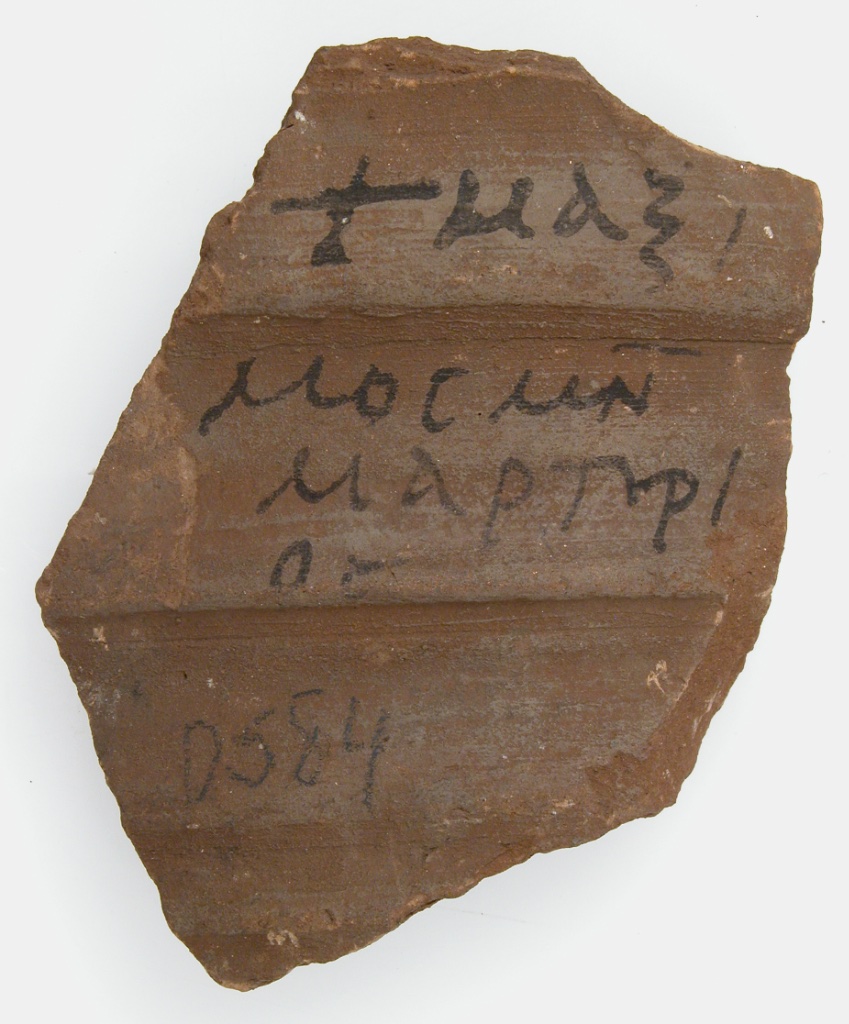 ϯ ⲙⲁⲝⲓ
ⲙⲟⲥ ⲙⲛ̄
ⲙⲁⲣⲧⲩⲣⲓ
ⲟⲥ
D584